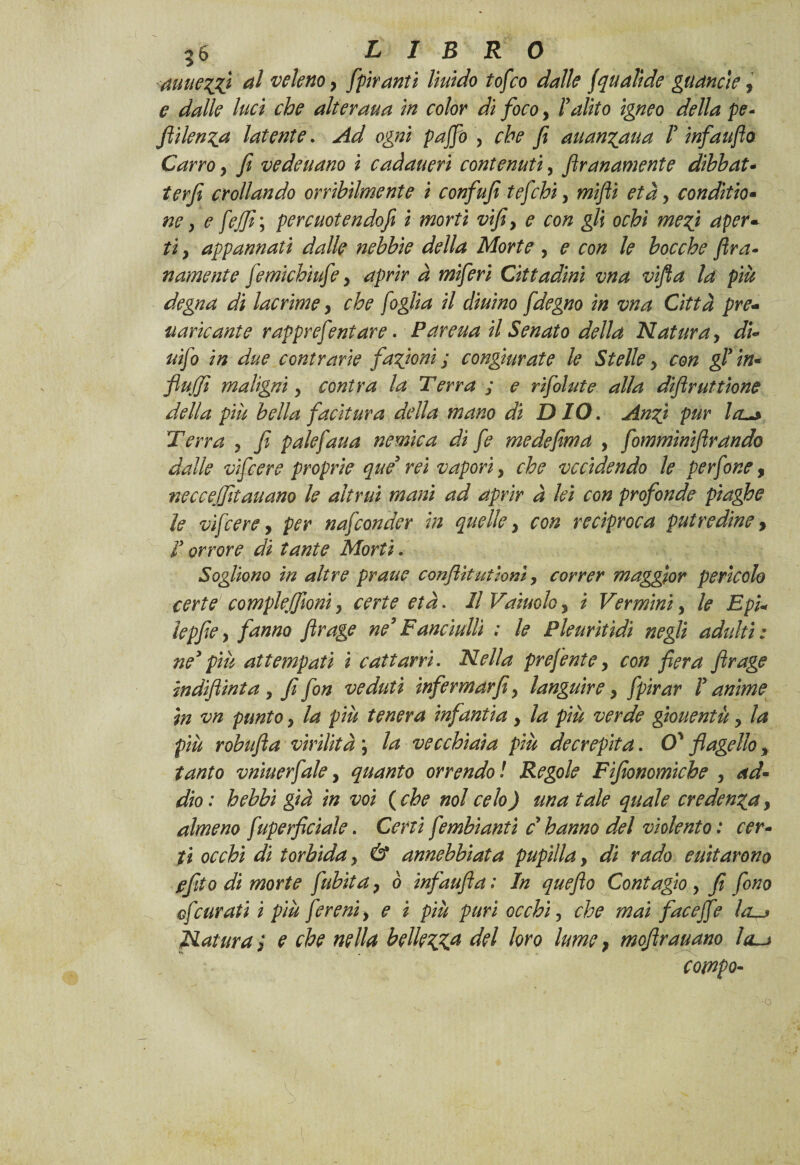 36 LIBRO
auuezzi al veleno, ſpiranti liuido toſco dalle ſqualide guancie,
e dalle luci che alteraua in color di foco, l'alito igneo della pe-
ſtilenza latente. Ad ogni paſſo, che ſi auanzaua l' infauſto
Carro, ſi vedeuano i cadaueri contenuti, ſtranamente dibbat-
terſi crollando orribilmente i confuſi teſchi, miſti età, conditio-
ne, e ſeſſi; percuotendoſi i morti viſi, e con gli ochi mezi aper-
ti, appannati dalle nebbie della Morte, e con le bocche ſtra-
namente ſemichiuſe, aprir à miſeri Cittadini vna viſta la più
degna di lacrime, che ſoglia il diuino ſdegno in vna Città pre-
uaricante rappreſentare. Pareua il Senato della Natura, di-
uiſo in due contrarie fazioni; congiurate le Stelle, con gl' in-
fluſſi maligni, contra la Terra; e riſolute alla diſtruttione
della più bella facitura della mano di DIO. Anzi pur la
Terra, ſi paleſaua nemica di ſe medeſima, ſomminiſtrando
dalle viſcere proprie que' rei vapori, che vccidendo le perſone,
necceſſitauano le altrui mani ad aprir à lei con profonde piaghe
le viſcere, per naſconder in quelle, con reciproca putredine,
l' orrore di tante Morti.
Sogliono in altre praue conſtitutioni, correr maggior pericolo
certe compleſſioni, certe età. Il Vaiuolo, i Vermini, le Epi-
lepſie, fanno ſtrage ne' Fanciulli : le Pleuritidi negli adulti :
ne' più attempati i cattarri. Nella preſente, con fiera ſtrage
indiſtinta, ſi ſon veduti infermarſi, languire, ſpirar l' anime
in vn punto, la più tenera infantia, la più verde giouentù, la
più robuſta virilità; la vecchiaia più decrepita. O' flagello,
tanto vniuerſale, quanto orrendo! Regole Fiſionomiche, ad-
dio : hebbi già in voi (che nol celo) una tale quale credenza,
almeno ſuperficiale. Certi ſembianti c' hanno del violento : cer-
ti occhi di torbida, & annebbiata pupilla, di rado euitarono
eſito di morte ſubita, ò infauſta : In queſto Contagio, ſi ſono
oſcurati i più ſereni, e i più puri occhi, che mai faceſſe la
Natura; e che nella bellezza del loro lume, moſtrauano la
compo-